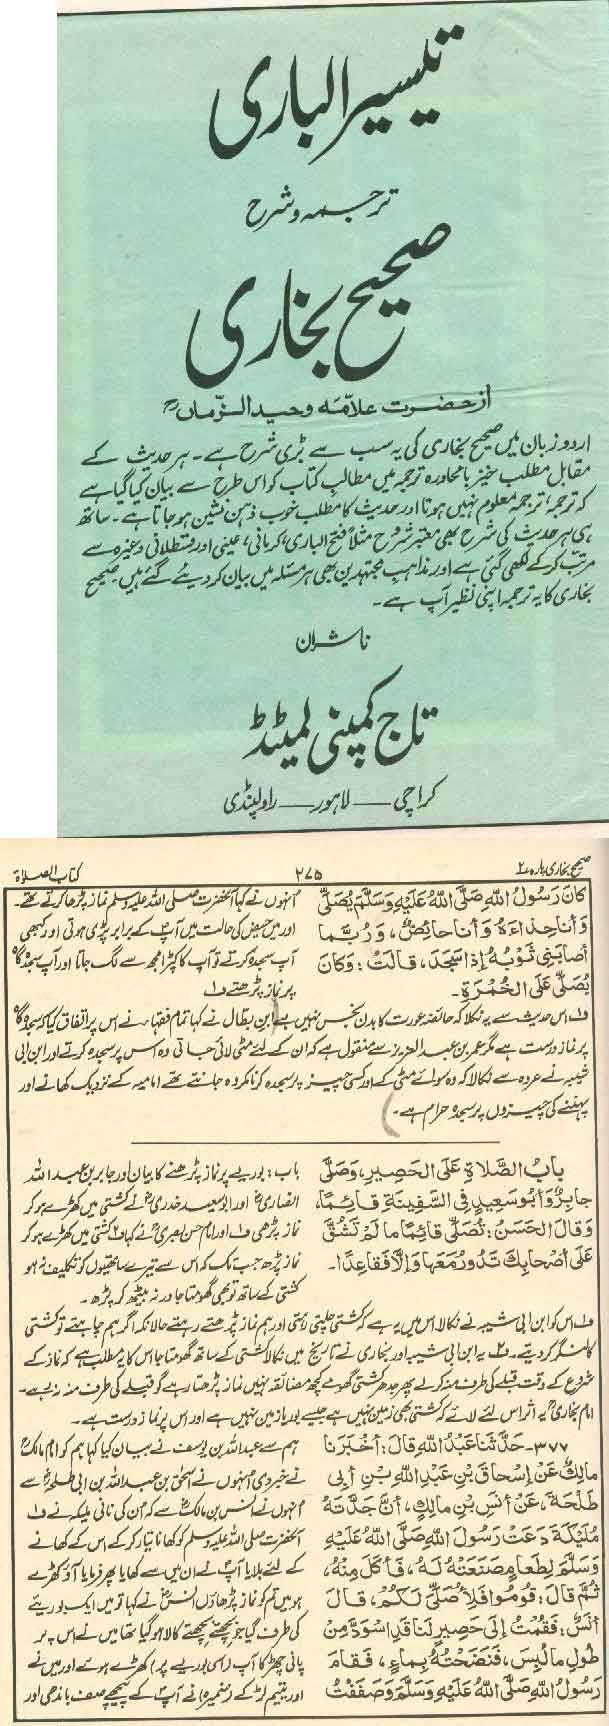 تیسیر الباری
ترجمہ و شرح
صحیح بخاری
از حضرت علامہ وحید الزماں رح
اردو زبان میں صحیح بخاری کی یہ سب سے بڑی شرح ہے۔ ہر حدیث کے
مقابل مطلب خیز بامحاورہ ترجمہ میں مطالب کتاب کو اس طرح سے بیان کیا گیا ہے
کہ ترجمہ، ترجمہ معلوم نہیں ہوتا اور حدیث کا مطلب خوب ذہن نشین ہو جاتا ہے۔ ساتھ
ہی ہر حدیث کی شرح بھی معتبر شروح مثلاً فتح الباری، کرمانی، عینی اور قسطلانی وغیرہ سے
مرتب کر کے لکھی گئی ہے اور مذاہب مجتہدین بھی ہر مسئلہ میں بیان کر دیئے گئے ہیں۔ صحیح
بخاری کا یہ ترجمہ اپنی نظیر آپ ہے۔
ناشران
تاج کمپنی لمیٹڈ
کراچی — لاہور — راولپنڈی
صحیح بخاری پارہ ۲
۲۷۵
کتاب الصلاة
كَانَ رَسُولُ اللهِ صَلَّى اللهُ عَلَيْهِ وَسَلَّمَ يُصَلِّي
وَأَنَا حِذَاءَهُ وَأَنَا حَائِضٌ، وَرُبَّمَا
أَصَابَنِي ثَوْبُهُ إِذَا سَجَدَ، قَالَتْ: وَكَانَ
يُصَلِّي عَلَى الْخُمْرَةِ۔
انہوں نے کہا آنحضرت صلی اللہ علیہ وسلم نماز پڑھا کرتے تھے۔
اور میں حیض کی حالت میں آپ کے برابر پڑی ہوتی اور کبھی
آپ سجدہ کرتے تو آپ کا کپڑا مجھ سے لگ جاتا اور آپ سجدہ گاہ
پر نماز پڑھتے ف۱
ف۱ اس حدیث سے یہ نکلا کہ حائضہ عورت کا بدن نجس نہیں ہے ابن بطال نے کہا تمام فقہاء نے اس پر اتفاق کیا کہ سجدہ گاہ
پر نماز درست ہے مگر عمر بن عبد العزیز سے منقول ہے کہ ان کے لئے مٹی لائی جاتی وہ اس پر سجدہ کرتے اور ابن ابی
شیبہ نے عروہ سے نکالا کہ وہ سوائے مٹی کے اور کسی چیز پر سجدہ کرنا مکروہ جانتے تھے امامیہ کے نزدیک کھانے اور
پہننے کی چیزوں پر سجدہ حرام ہے۔
بَابُ الصَّلَاةِ عَلَى الْحَصِيرِ، وَصَلَّى
جَابِرٌ وَأَبُو سَعِيدٍ فِي السَّفِينَةِ قَائِمًا،
وَقَالَ الْحَسَنُ: تُصَلِّي قَائِمًا مَا لَمْ تَشُقَّ
عَلَى أَصْحَابِكَ تَدُورُ مَعَهَا وَإِلَّا فَقَاعِدًا۔
باب: بوریے پر نماز پڑھنے کا بیان اور جابر بن عبد اللہ
انصاری اور ابو سعید خدری نے کشتی میں کھڑے ہو کر
نماز پڑھی ف۱ اور امام حسن بصری نے کہا ف۲ کشتی میں کھڑے ہو کر
نماز پڑھ جب تک کہ اس سے تیرے ساتھیوں کو تکلیف نہ ہو
کشتی کے ساتھ تو بھی گھومتا جا ورنہ بیٹھ کر پڑھ۔
ف۱ اس کو ابن ابی شیبہ نے نکالا اس میں یہ ہے کہ کشتی چلتی رہتی اور ہم نماز پڑھتے رہتے حالانکہ اگر ہم چاہتے تو کشتی
کا لنگر کر دیتے۔ ف۲ یہ ابن ابی شیبہ اور بخاری نے تاریخ میں نکالا کشتی کے ساتھ گھومتا جا اس کا یہ مطلب ہے کہ نماز کے
شروع کے وقت قبلے کی طرف منہ کر لے پھر جدھر کشتی گھومے کچھ مضائقہ نہیں نماز پڑھتا رہے گو قبلے کی طرف منہ نہ رہے۔
امام بخاری یہ اثر اس لئے لائے کہ کشتی بھی زمین نہیں ہے جیسے بوریا زمین نہیں ہے اور اس پر نماز درست ہے۔
۳۷۷- حَدَّثَنَا عَبْدُ اللهِ قَالَ: أَخْبَرَنَا
مَالِكٌ عَنْ إِسْحَاقَ بْنِ عَبْدِ اللهِ بْنِ أَبِي
طَلْحَةَ، عَنْ أَنَسِ بْنِ مَالِكٍ، أَنَّ جَدَّتَهُ
مُلَيْكَةَ دَعَتْ رَسُولَ اللهِ صَلَّى اللهُ عَلَيْهِ
وَسَلَّمَ لِطَعَامٍ صَنَعَتْهُ لَهُ، فَأَكَلَ مِنْهُ،
ثُمَّ قَالَ: قُومُوا فَلِأُصَلِّيَ لَكُمْ، قَالَ
أَنَسٌ: فَقُمْتُ إِلَى حَصِيرٍ لَنَا قَدِ اسْوَدَّ مِنْ
طُولِ مَا لُبِسَ، فَنَضَحْتُهُ بِمَاءٍ، فَقَامَ
رَسُولُ اللهِ صَلَّى اللهُ عَلَيْهِ وَسَلَّمَ وَصَفَفْتُ
ہم سے عبد اللہ بن یوسف نے بیان کیا کہا ہم کو امام مالک
نے خبر دی انہوں نے اسحٰق بن عبد اللہ بن ابی طلحہ سے
انہوں نے انس بن مالک سے کہ ان کی نانی ملیکہ نے ف۱
آنحضرت صلی اللہ علیہ وسلم کو کھانا تیار کر کے اس کے کھانے
کے لئے بلایا آپ نے ان میں سے کھایا پھر فرمایا آؤ کھڑے
ہو میں تم کو نماز پڑھاؤں انس نے کہا تو میں ایک بوریئے
کی طرف گیا جو بچھتے بچھتے کالا ہو گیا تھا میں نے اس پر
پانی چھڑکا آپ (اسی بوریے پر) کھڑے ہوئے اور میں نے
اور یتیم لڑکے (ضمیرہ) نے آپ کے پیچھے صف باندھی اور